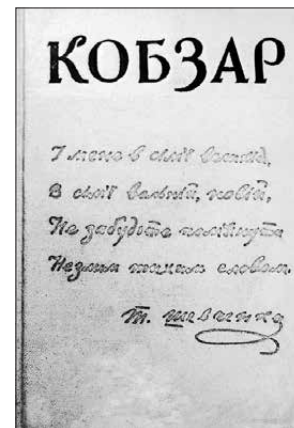 КОБЗАР
І мене в сімї великій,
В сімї вольній, новій,
Не забудьте помянути
Незлим тихим словом.
Т. Шевченко